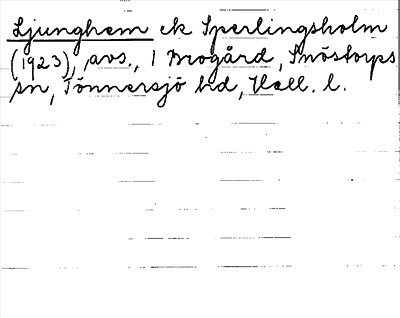 Ljunghem ek Sperlingsholm
(1923), avs., 1 Brogård, Snöstorps
sn, Tönnersjö hd, Hall. l.